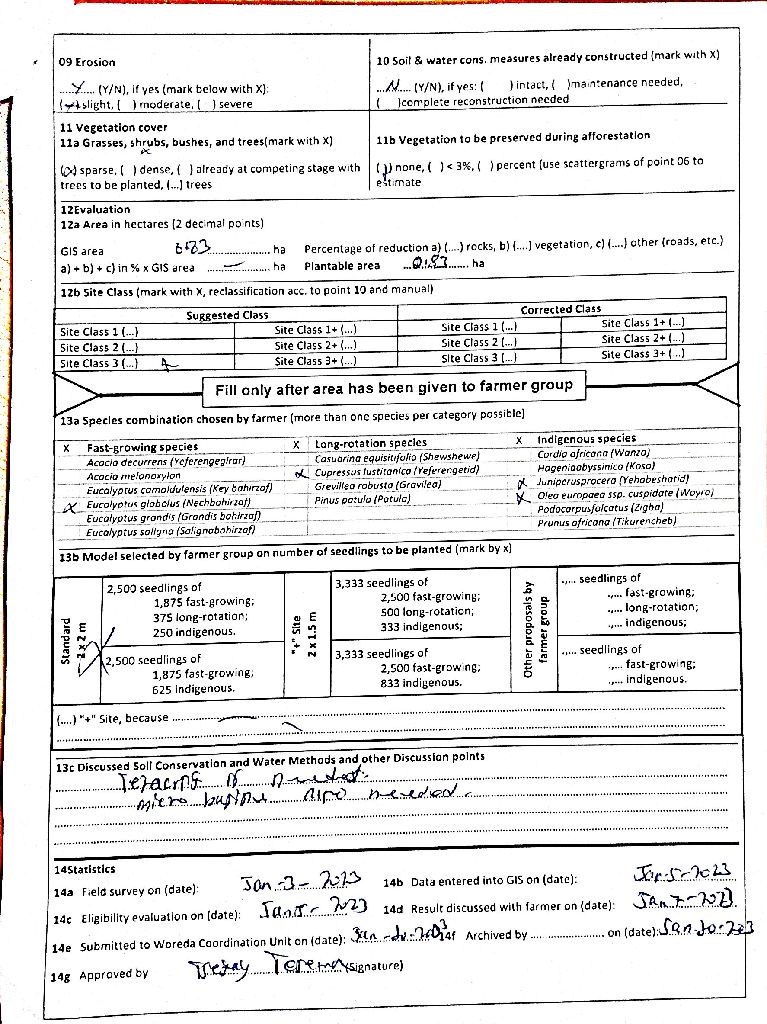 09 Erosion
....Y.... (Y/N), if yes (mark below with X):
(x)slight, ( ) moderate, ( ) severe
10 Soil & water cons. measures already constructed (mark with X)
....N.... (Y/N), if yes: ( ) intact, ( )maintenance needed,
( )complete reconstruction needed
11 Vegetation cover
11a Grasses, shrubs, bushes, and trees(mark with X)
(x) sparse, ( ) dense, ( ) already at competing stage with
trees to be planted, (...) trees
11b Vegetation to be preserved during afforestation
( ) none, ( ) < 3%, ( ) percent (use scattergrams of point 06 to
estimate
12Evaluation
12a Area in hectares (2 decimal points)
GIS area ha Percentage of reduction a) (....) rocks, b) (....) vegetation, c) (....) other (roads, etc.)
a) + b) + c) in % x GIS area ........—........ ha Plantable area ...0.83...... ha
12b Site Class (mark with X, reclassification acc. to point 10 and manual)
Suggested Class Corrected Class
Site Class 1 (...) Site Class 1+ (...) Site Class 1 (...) Site Class 1+ (...)
Site Class 2 (...) Site Class 2+ (...) Site Class 2 (...) Site Class 2+ (...)
Site Class 3 (...) x Site Class 3+ (...) Site Class 3 (...) Site Class 3+ (...)
Fill only after area has been given to farmer group
13a Species combination chosen by farmer (more than one species per category possible)
X Fast-growing species
Acacia decurrens (Yeferengegirar)
Acacia melonoxylon
Eucalyptus camaldulensis (Key bahirzaf)
x Eucalyptus globolus (Nechbahirzaf)
Eucalyptus grandis (Grandis bahirzaf)
Eucalyptus saligna (Salignabahirzaf)
X Long-rotation species
Casuarina equisitifolia (Shewshewe)
x Cupressus lustitanica (Yeferengetid)
Grevillea robusta (Gravilea)
Pinus patula (Patula)
X Indigenous species
Cordia africana (Wanza)
Hageniaabyssinica (Koso)
x Juniperusprocera (Yehabeshatid)
x Olea europaea ssp. cuspidate (Wayra)
Podocarpusfalcatus (Zigba)
Prunus africana (Tikurencheb)
13b Model selected by farmer group on number of seedlings to be planted (mark by x)
Standard
2 x 2 m
2,500 seedlings of
1,875 fast-growing;
375 long-rotation;
250 indigenous.
2,500 seedlings of
1,875 fast-growing;
625 indigenous.
"+" Site
2 x 1.5 m
3,333 seedlings of
2,500 fast-growing;
500 long-rotation;
333 indigenous;
3,333 seedlings of
2,500 fast-growing;
833 indigenous.
Other proposals by
farmer group
.,... seedlings of
.,... fast-growing;
.,... long-rotation;
.,... indigenous;
.,... seedlings of
.,... fast-growing;
.,... indigenous.
(....) "+" Site, because
13c Discussed Soil Conservation and Water Methods and other Discussion points
needed.
14Statistics
14a Field survey on (date): Jan-3-2023 14b Data entered into GIS on (date): Jan-5-2023
14c Eligibility evaluation on (date): Jan5-2023 14d Result discussed with farmer on (date): Jan 7-2023
14e Submitted to Woreda Coordination Unit on (date): 14f Archived by ........................ on (date):
14g Approved by (Signature)